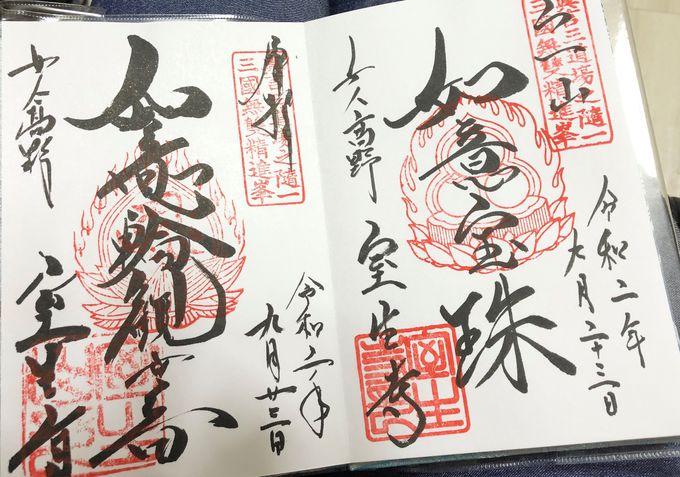 宀一山
與第三道場之隨一
三國無雙精進峯
令和二年
九月二十三日
如意宝珠
女人高野
室生寺
奉拝
之隨一
三國無雙精進峯
令和二年
九月廿三日
如意輪観世音
女人高野
室生寺